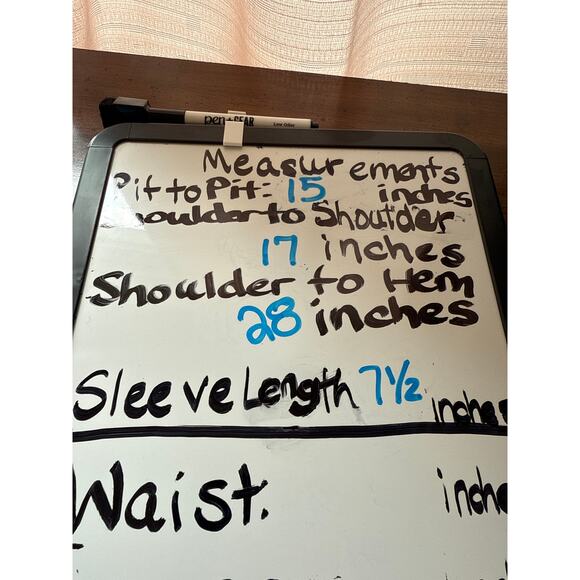 pen+GEAR Low Odor
Measurements
Pit to Pit: 15 inches
Shoulder to Shoulder
17 inches
Shoulder to Hem
28 inches
Sleeve Length 7½ inches
Waist: inches